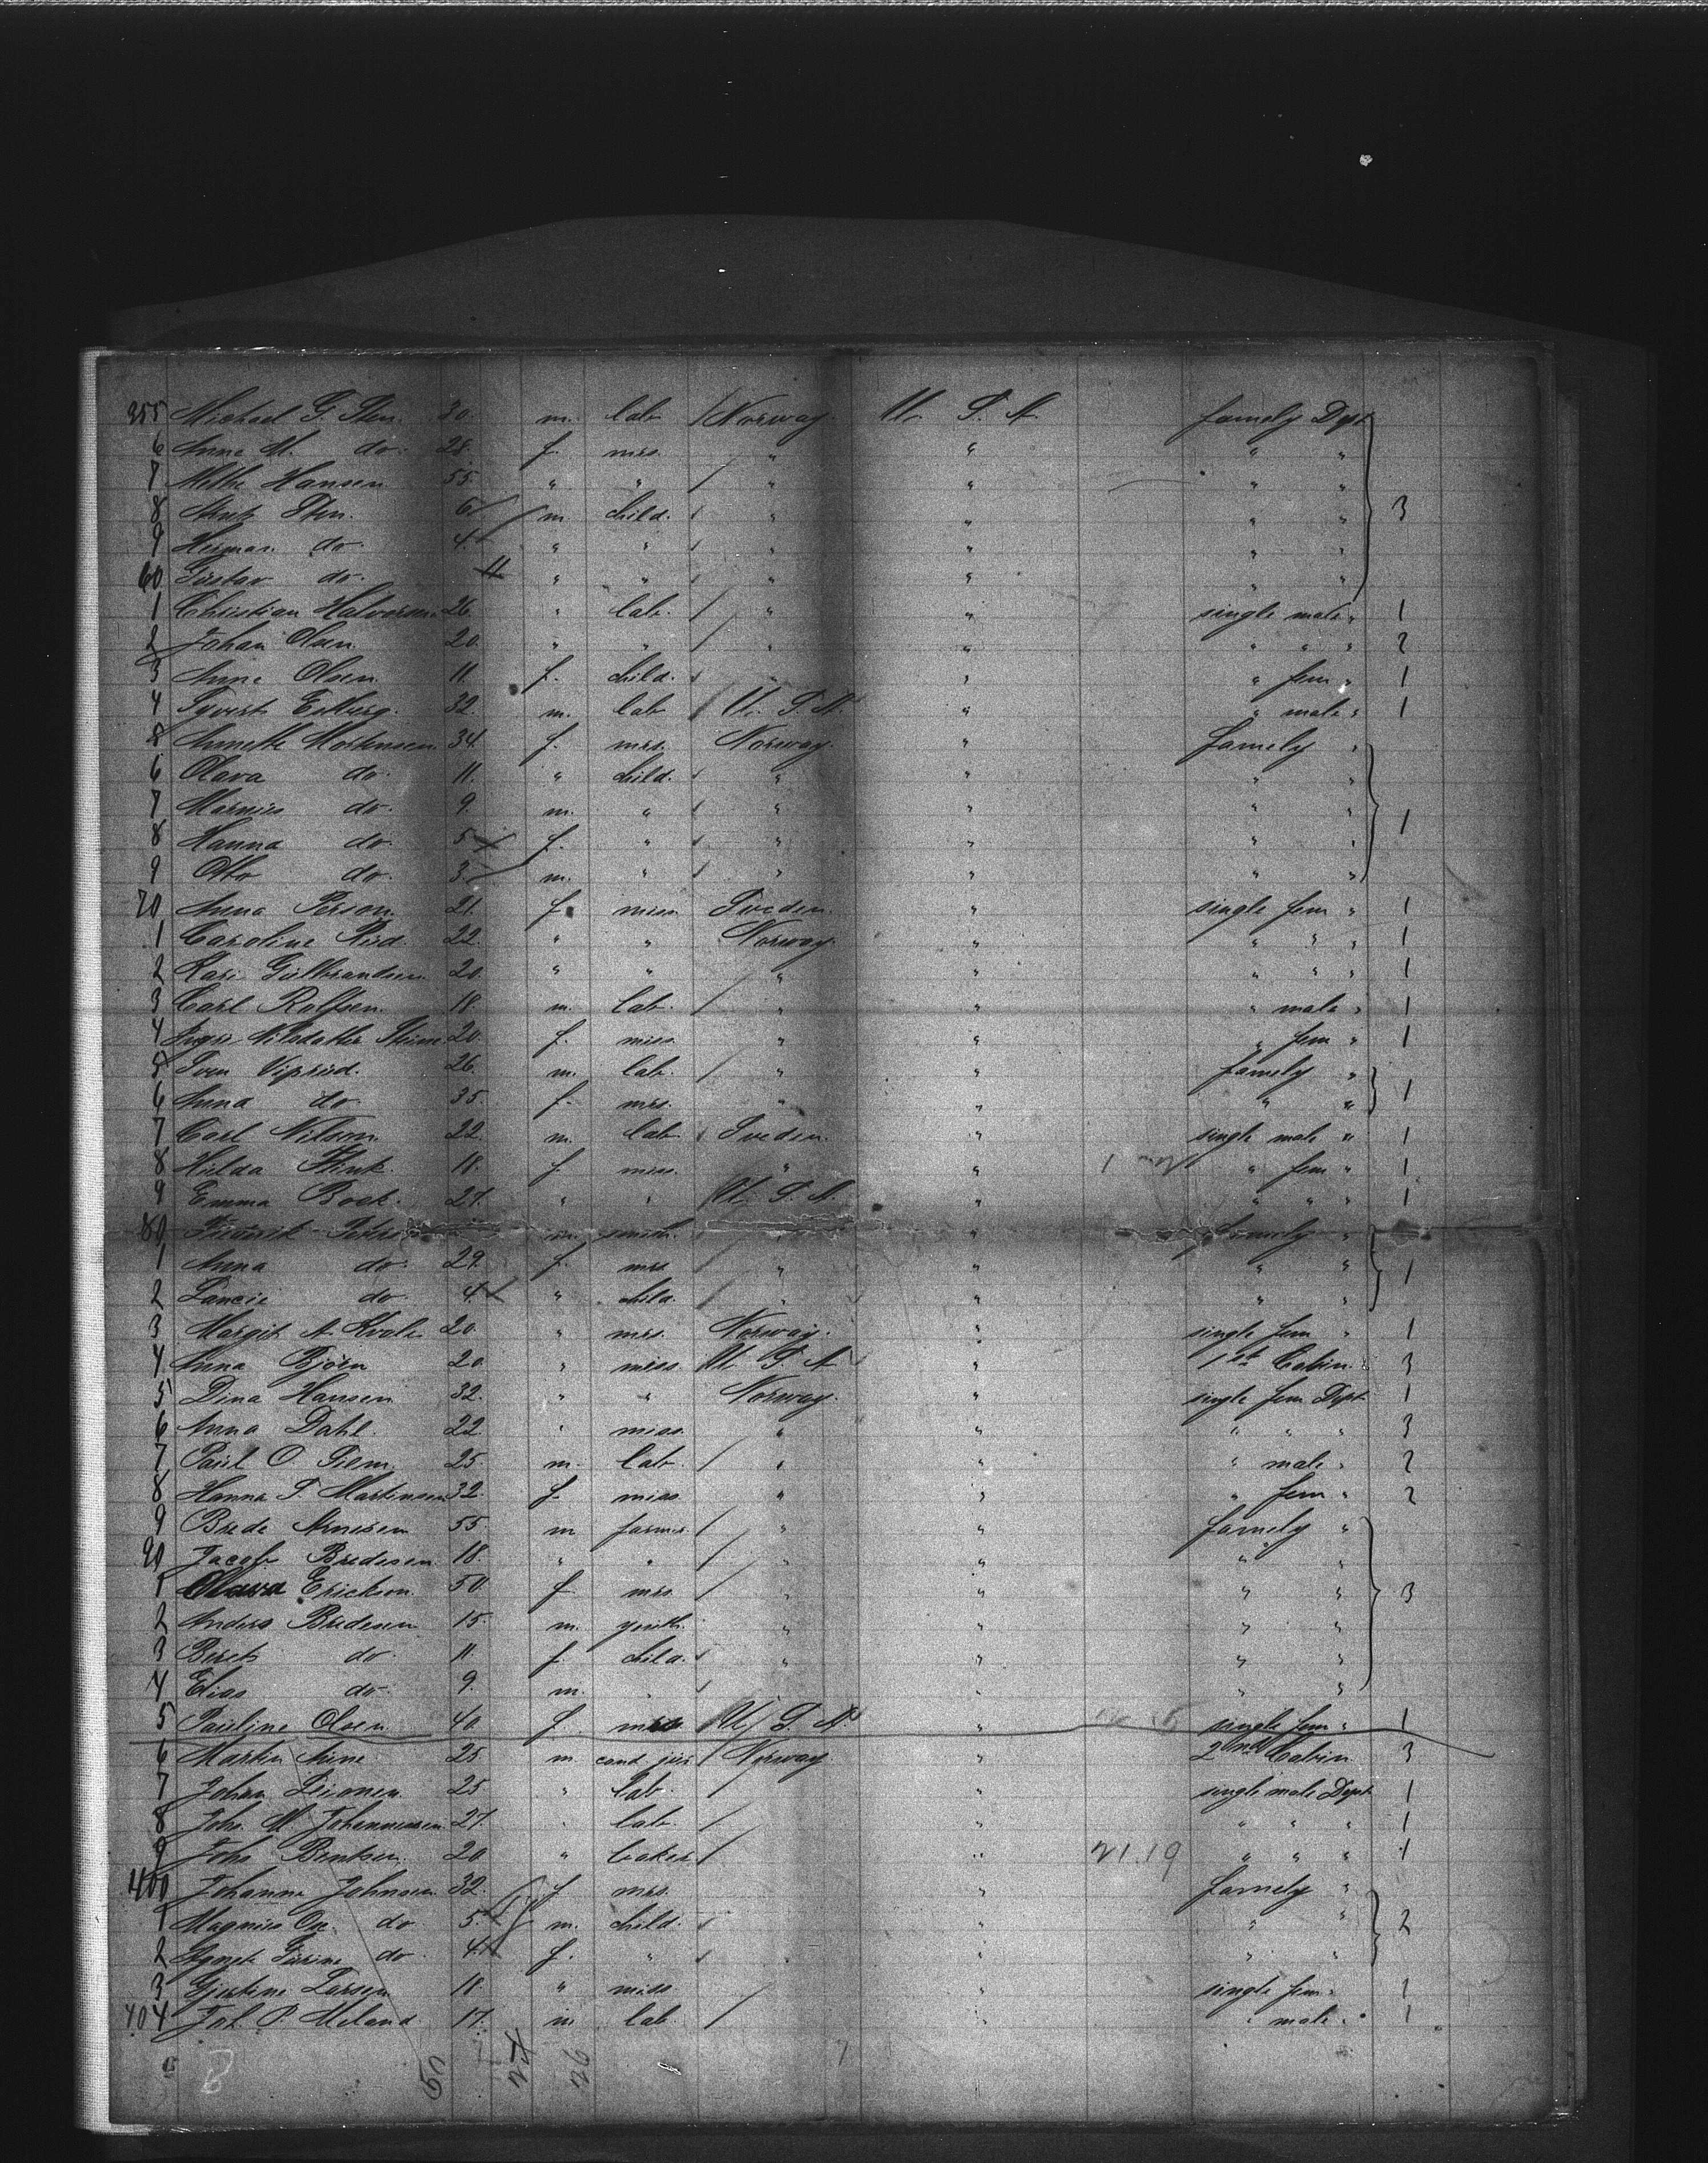 355 Michael G. Sten. 30. m. lab. / Norway. U. S. A. famely Dept
6 Anne M. do. 28. f. mrs. " " " "
7 Methe Hansen 55. " " / " " " "
8 Sten. 6 m child. " " " " 3
9 Herman do. 4. " " " " " "
60 Gustav do. 11 " " " " " "
1 Christian Halvorsen 26. " lab. / " " single male " 1
2 Johan Olsen 20. " " / " " " " " 2
3 Anne Olsen. 11. f. child. " " fem " 1
4 Syvert 32. m. lab / U. S. A. " " male " 1
5 Annette Mortensen 34. f. mrs. Norway. " famely "
6 Olava do. 11. " child. " " " "
7 Marius do. 9. m. " " " " " 1
8 Hanna do. 5 f. " " " " "
9 Otto do. 3. m. " " " " "
70 Anna Person. 21. f. miss Sveden. " single fem " 1
1 Caroline Rud. 22. " " Norway. " " " " 1
2 Kari Gulbrandsen 20. " " " " " " " 1
3 Carl Rolfsen. 18. m. lab. / " " " male " 1
4 Nilsdatter 20. f. miss " " " fem " 1
5 Sven 26. m. lab. / " " famely "
6 Anna do 35. f. mrs. " " " " 1
7 Carl Nilson 22. m. lab. Sveden. " single male " 1
8 Hulda 18. f. miss. " " 1 " fem " 1
9 Emma Bock. 27. " " U. S. A. " " " " 1
80 m. smith. " " famely "
1 Anna do. 29. f. mrs / " " " " 1
2 do. 4. " child. / " " " "
3 Margit A. Kvale 20. " mrs. Norway. " single fem " 1
4 Anna Bjørn 20. " miss U. S. A. " 1st Cabin. 3
5 Dina Hansen 32. " " Norway. " single fem Dept. 1
6 Anna Dahl. 22. " miss. " " " " " 3
7 Paul O. 25. m. lab. / " " " male " 2
8 Hanna S. Martinsen 32. f. miss " " " fem " 2
9 Brede Arnesen 55. m farmer / " " famely "
90 Jacob Bredesen. 18. " " / " " " "
1 Erickson. 50. f. mrs. / " " " " 3
2 Anders Bredesen 15. m. youth. " " " "
3 Berit do. 11. f. child. " " " "
4 Elias do. 9. m. " " " " "
5 Pauline Olsen 40. f. U. S. A. " single fem " 1
6 Martin Aune 25. m. cand. jur / Norway " 2nd Cabin 3
7 Johan 25 " lab. / " single male Dept 1
8 Johs. M. Johannessen. 27. " lab. / " " " " 1
9 Johs Bentsen. 20. " baker / " 21.19 " " " 1
400 Johanne Johnsen 32. f mrs. " famely "
1 Magnus do. 5. m. child. " " " 2
2 do. 4. f. " " " "
3 Larsen 18. " miss. " single fem " 1
404 Joh. P. Meland. 17. m lab. / " " male " 1